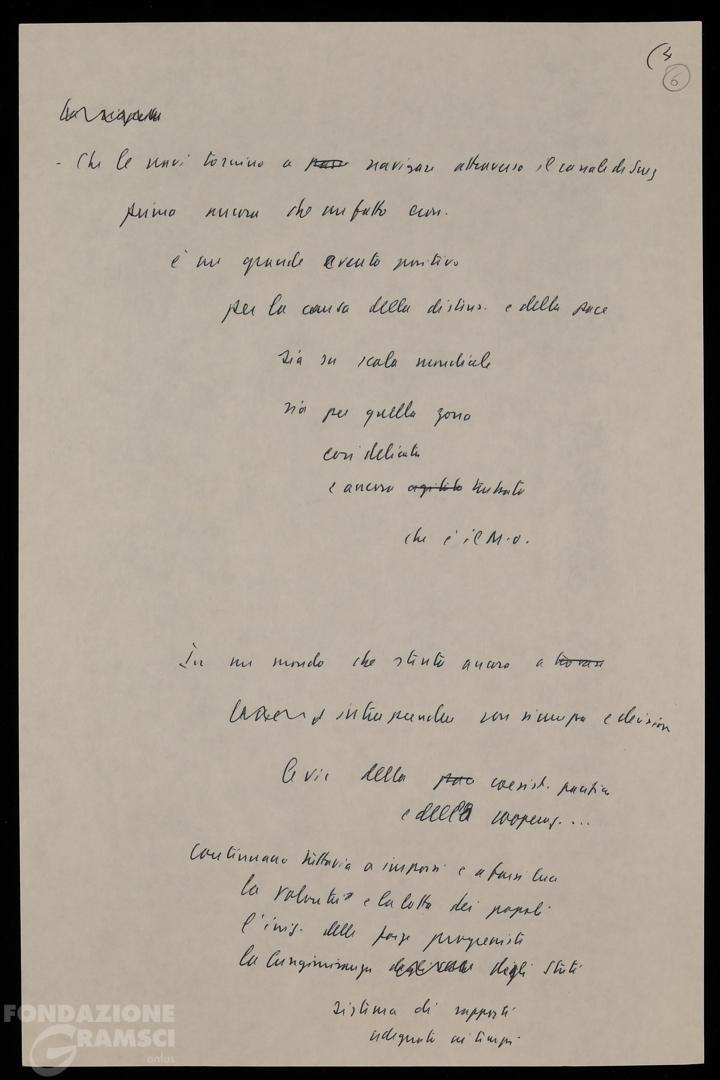 (4
6
- Che le navi tornino a navigare attraverso il canale di Suez
prima ancora che un fatto econ.
è un grande evento positivo
per la causa della distens. e della pace
sia su scala mondiale
sia per quella zona
così delicata
e ancora agitata turbata
che è il M.O.
In un mondo che stenta ancora a trovare
intraprendere con sicurezza e decisione
le vie della pace coesist. pacifica
e della cooperaz. ...
continuano tuttavia a imporsi e a farsi luce
la volontà e la lotta dei popoli
l'iniz. delle forze progressiste
la lungimiranza degli Stati
sistema di rapporti
adeguato ai tempi
FONDAZIONE
GRAMSCI
onlus